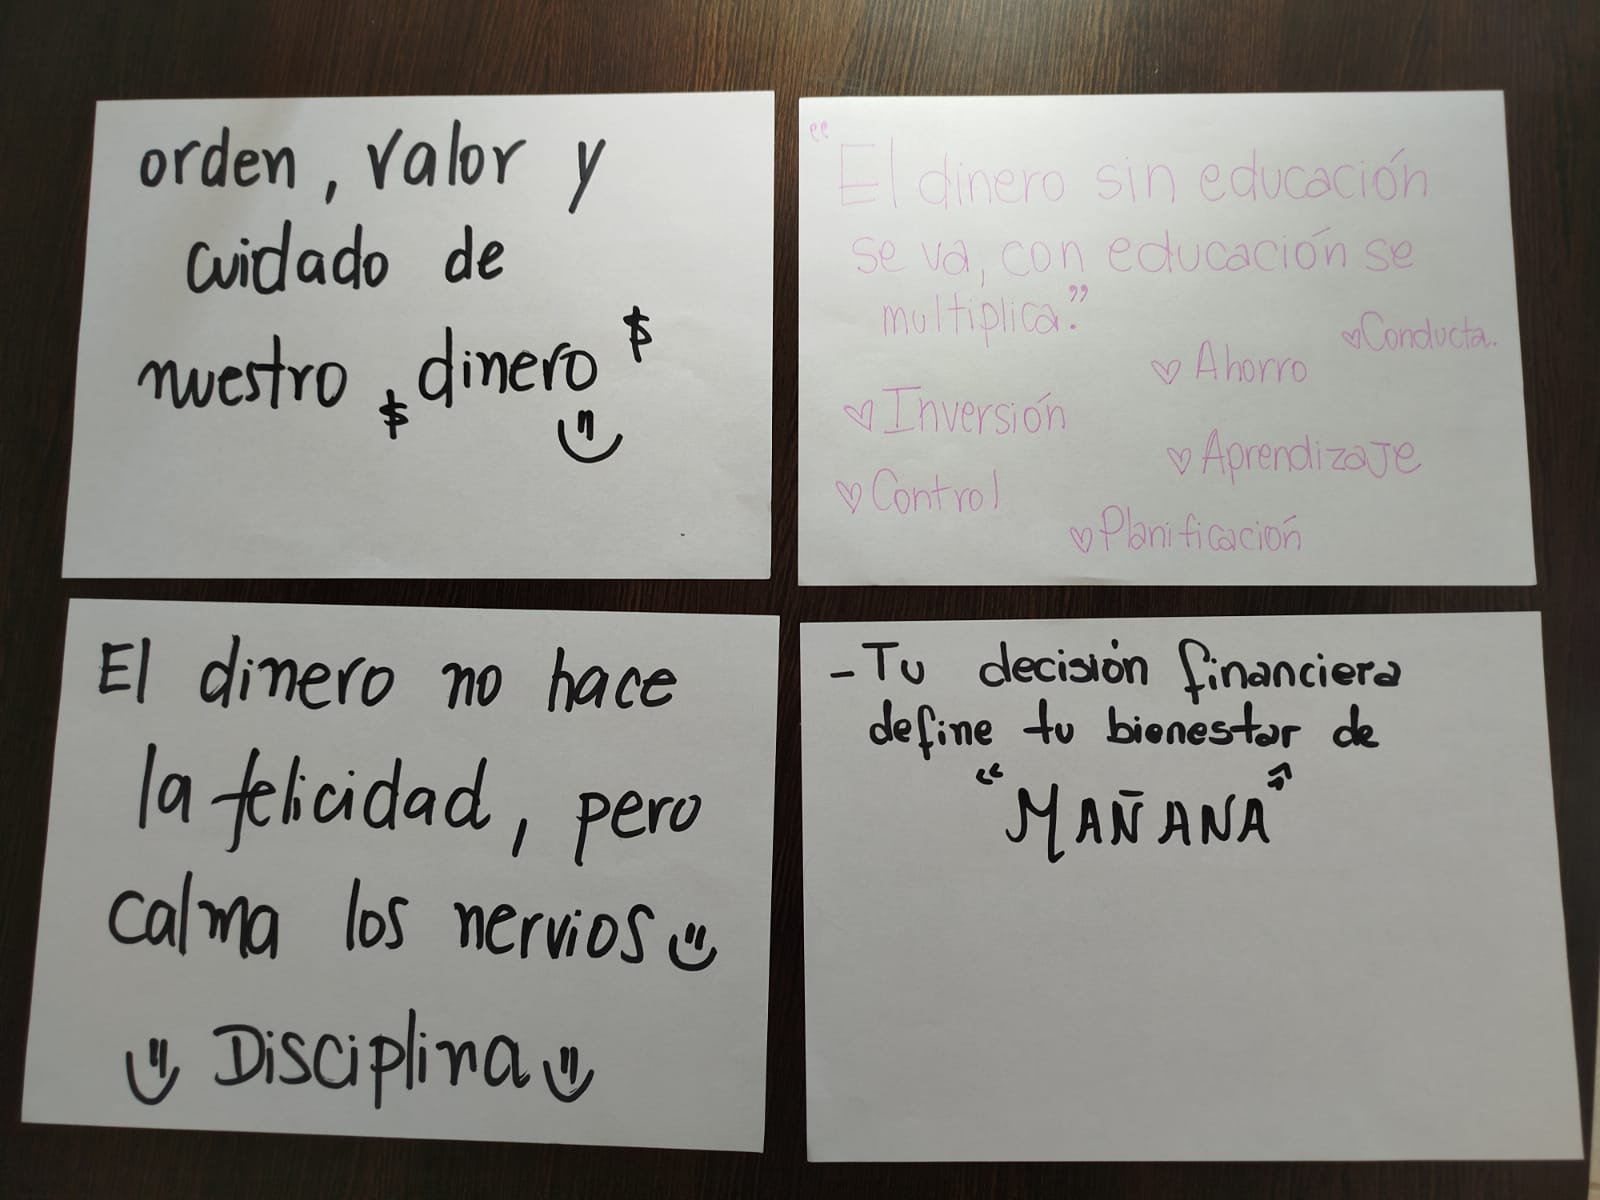 orden, valor y
cuidado de
nuestro $ dinero $
"El dinero sin educación
se va, con educación se
multiplica."
♡Conducta.
♡ Ahorro
♡ Inversión
♡ Aprendizaje
♡ Control
♡ Planificación
El dinero no hace
la felicidad, pero
calma los nervios
Disciplina
- Tu decisión financiera
define tu bienestar de
"MAÑANA"